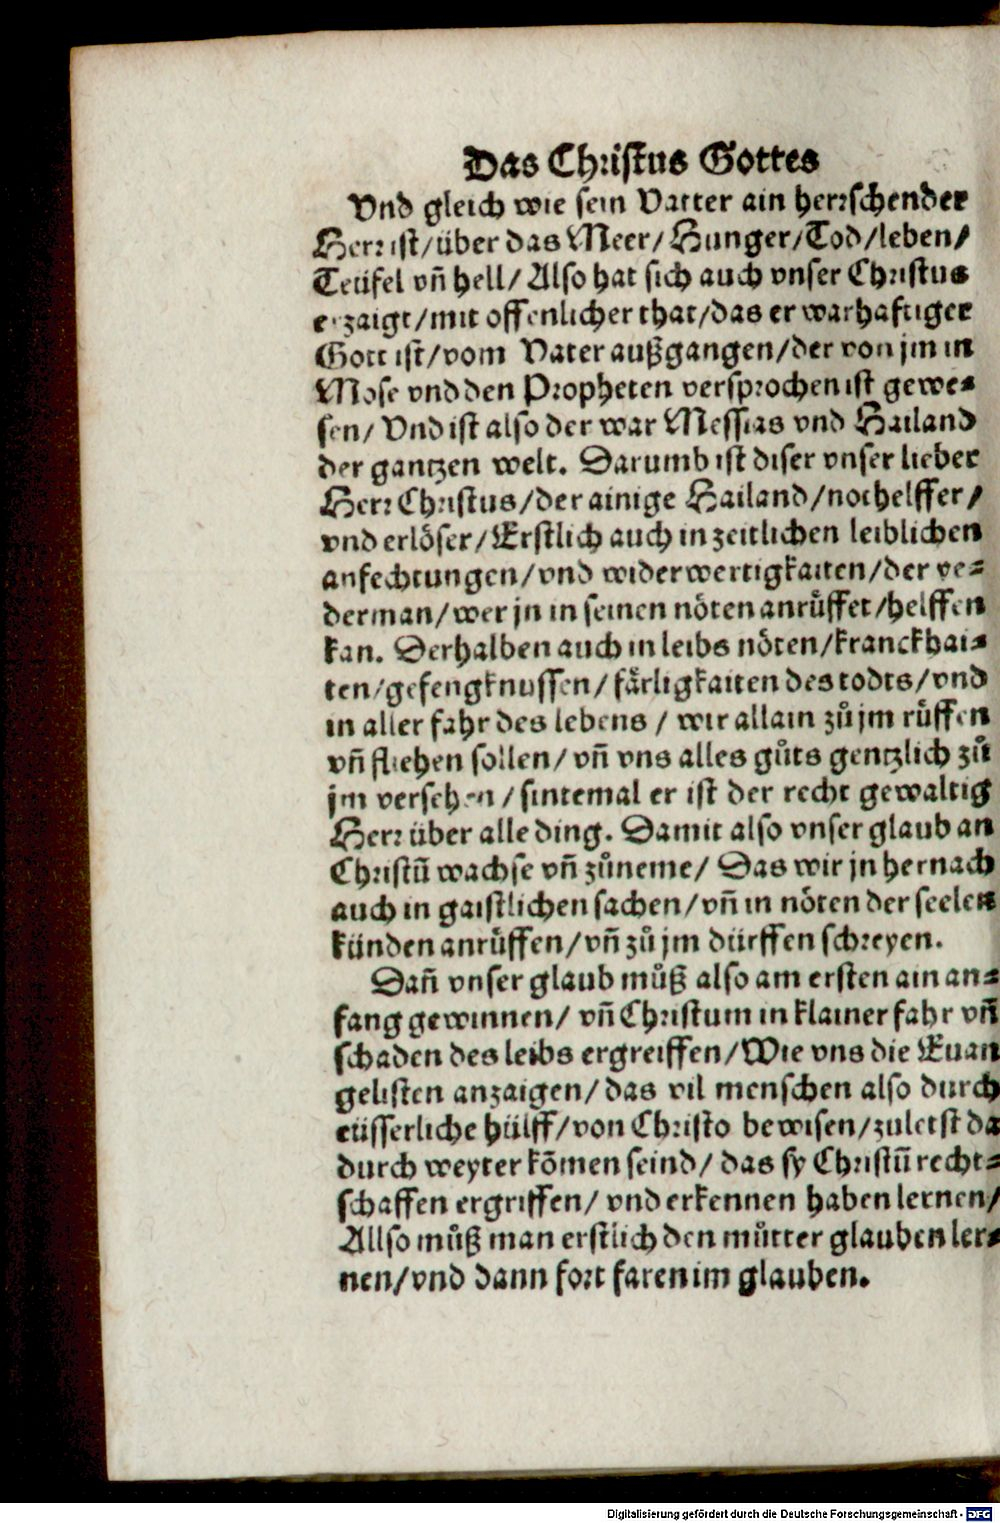 Das Christus Gottes
Vnd gleich wie sein Vatter ain herrschender
Herr ist/über das Meer/Hunger/Tod/leben/
Teüfel vñ hell/Also hat sich auch vnser Christus
erzaigt/mit offenlicher that/das er warhafftiger
Gott ist/vom Vater außgangen/der von jm in
Mose vnd den Propheten versprochen ist gewe-
sen/Vnd ist also der war Messias vnd Hailand
der gantzen welt. Darumb ist diser vnser lieber
Herr Christus/der ainige Hailand/nothelffer/
vnd erlöser/Erstlich auch in zeitlichen leiblichen
anfechtungen/vnd widerwertigkaiten/der ye-
derman/wer jn in seinen nöten anrüffet/helffen
kan. Derhalben auch in leibs nöten/kranckhai-
ten/gefengknussen/färligkaiten des todts/vnd
in aller fahr des lebens/wir allain zů jm rüffen
vñ fliehen sollen/vñ vns alles gůts gentzlich zů
jm versehen/sintemal er ist der recht gewaltig
Herr über alle ding. Damit also vnser glaub an
Christū wachse vñ zůneme/Das wir jn hernach
auch in gaistlichen sachen/vñ in nöten der seelen
künden anrüffen/vñ zů jm dürffen schreyen.
Dañ vnser glaub můß also am ersten ain an-
fang gewinnen/vñ Christum in klainer fahr vñ
schaden des leibs ergreiffen/Wie vns die Euan
gelisten anzaigen/das vil menschen also durch
eüsserliche hülff/von Christo bewisen/zuletst da
durch weyter kōmen seind/das sy Christū recht-
schaffen ergriffen/vnd erkennen haben lernen/
Allso můß man erstlich den můtter glauben ler-
nen/vnd dann fort faren im glauben.
Digitalisierung gefördert durch die Deutsche Forschungsgemeinschaft - DFG